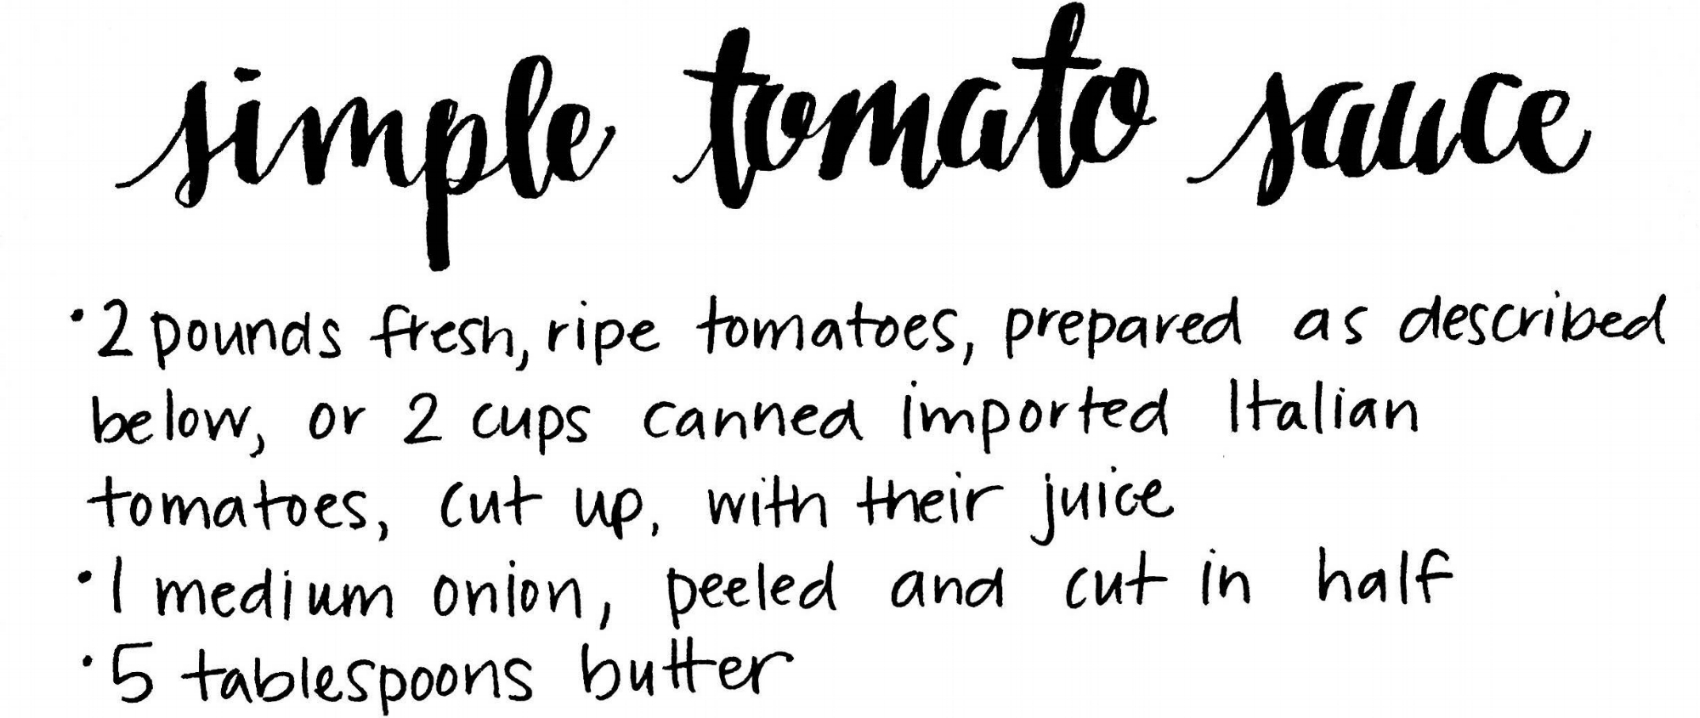 simple tomato sauce
• 2 pounds fresh, ripe tomatoes, prepared as described
below, or 2 cups canned imported Italian
tomatoes, cut up, with their juice
• 1 medium onion, peeled and cut in half
• 5 tablespoons butter